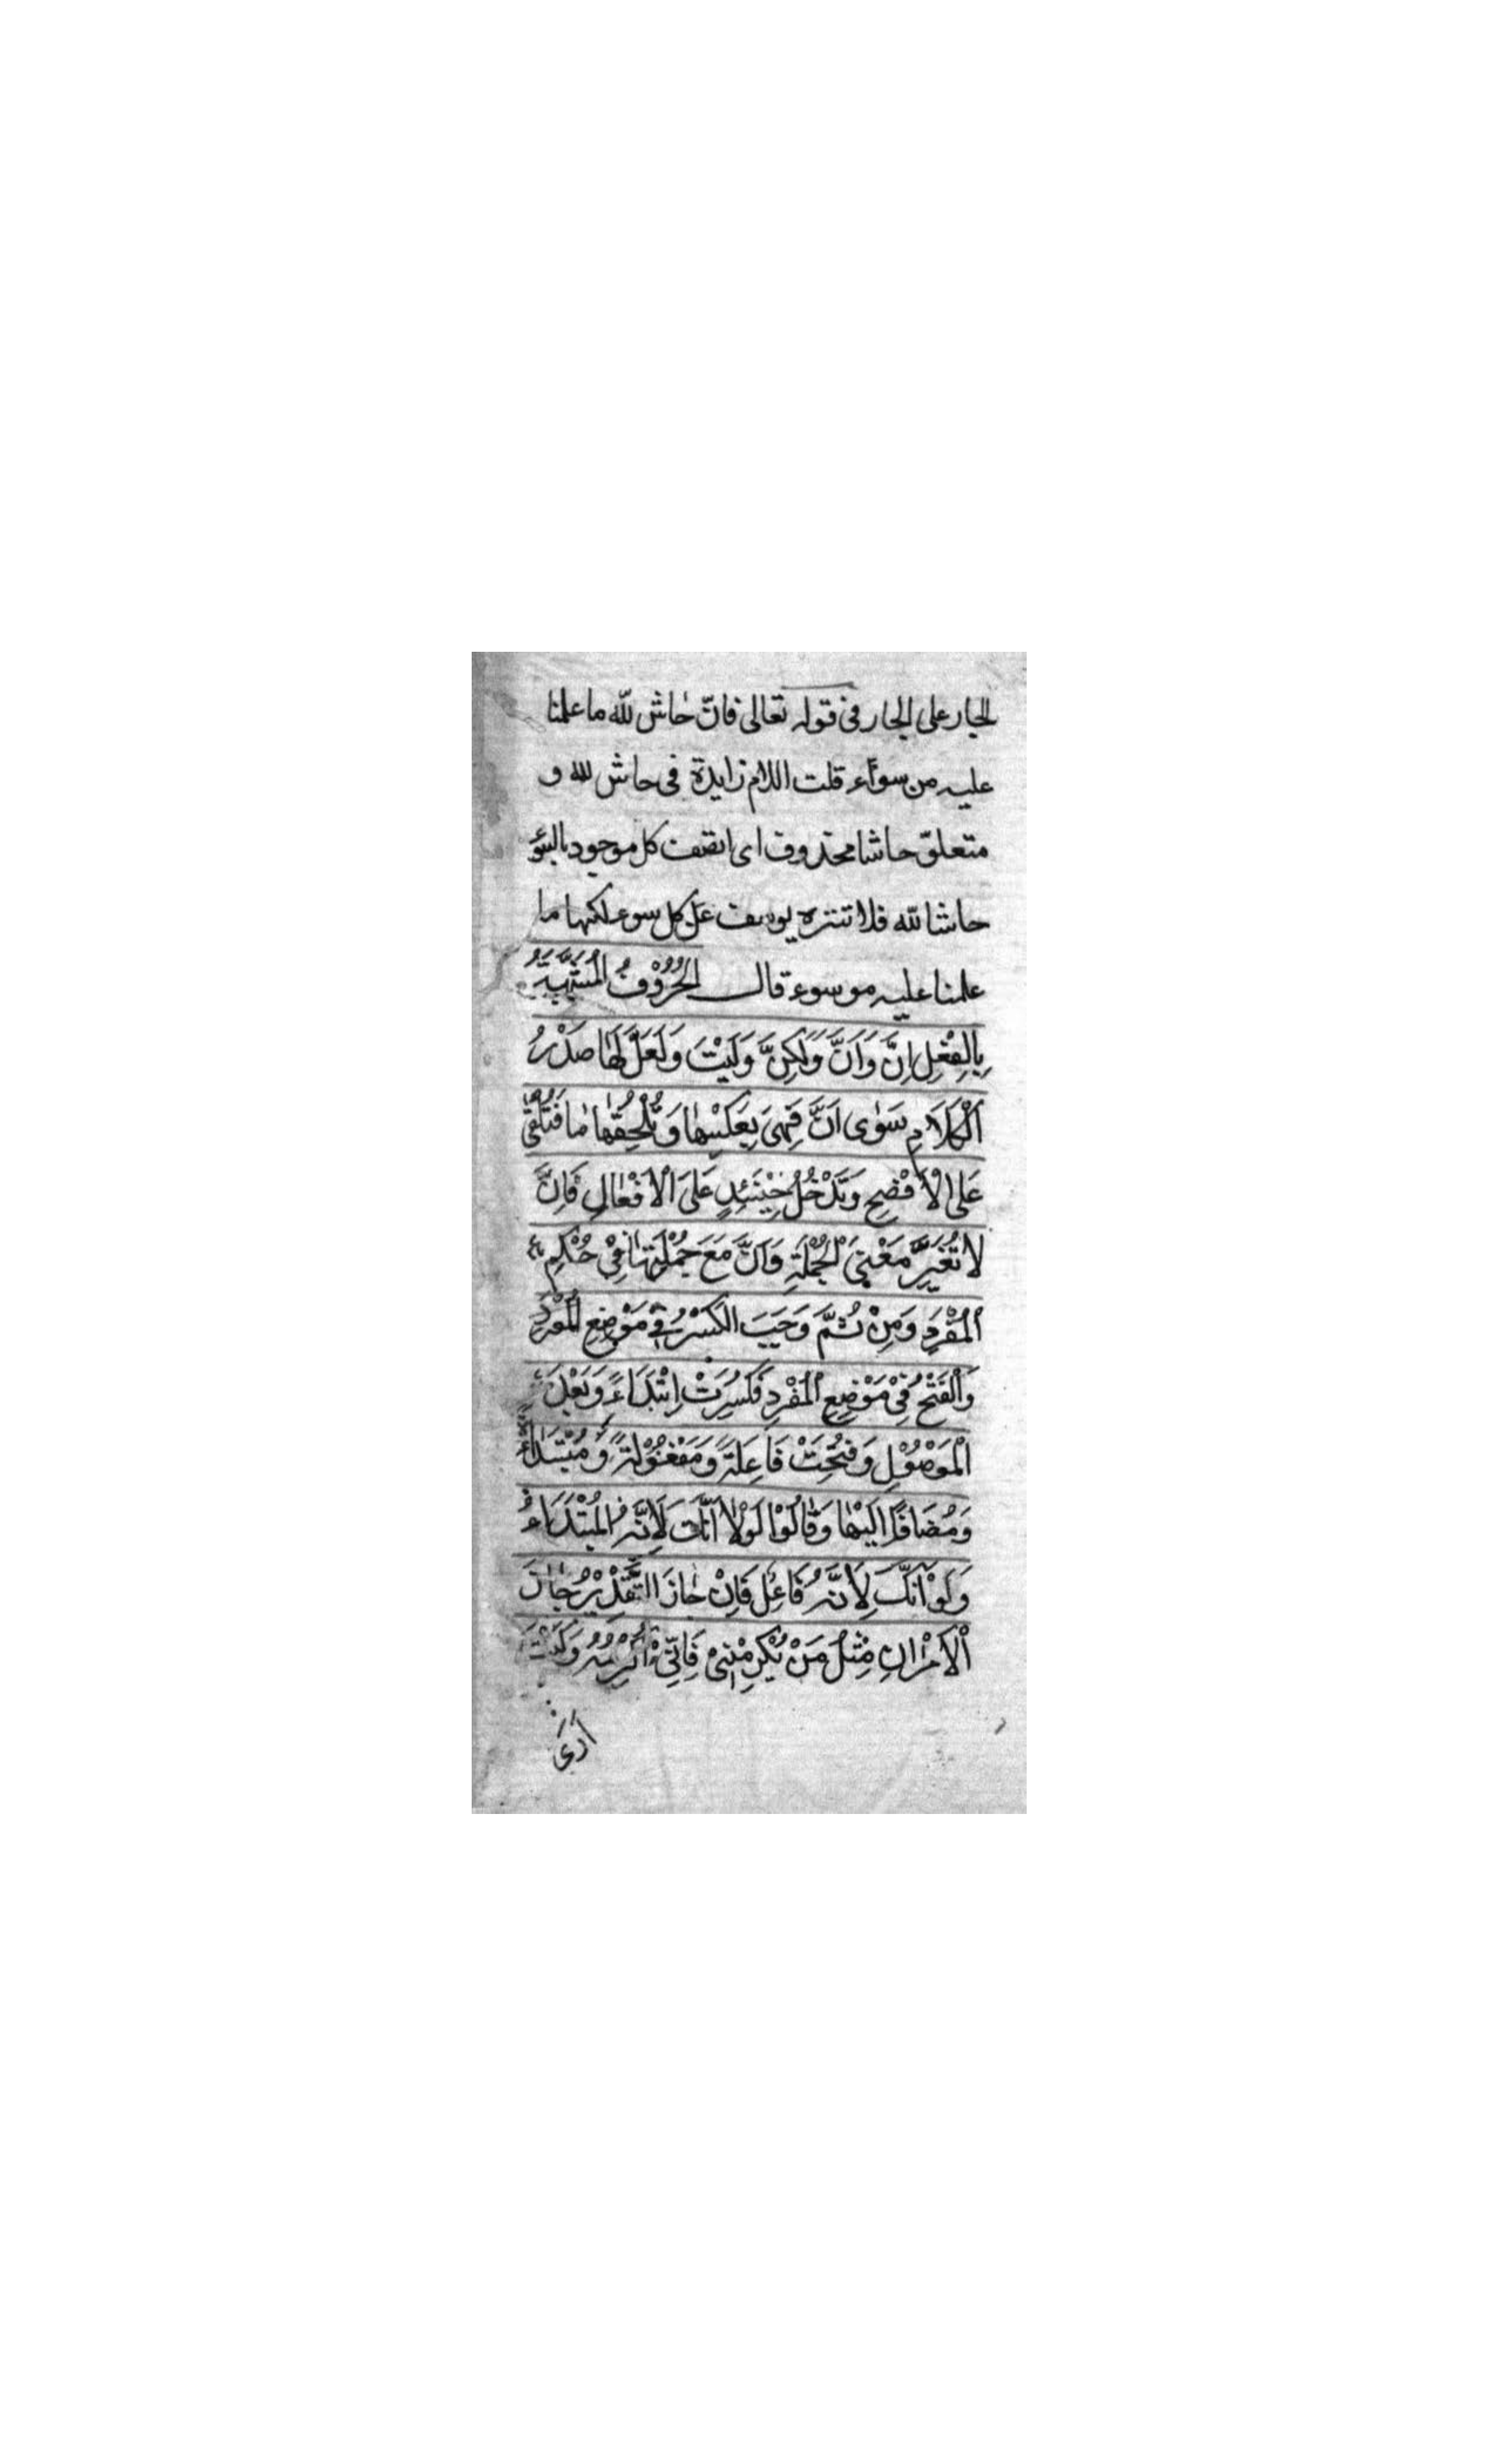 الجار على الجار في قوله تعالى فان حاش لله ما علمنا
عليه من سوآء قلت اللام زايدة فى حاش لله و
متعلق حاشا محذوف اى اتصف كل موجود بالسوء
حاشا لله فلا تنتزه يوسف عن كل سوء لكنها ما
علمنا عليه مو سوء قال الْحُرُوْفُ الْمُشَبَّهَةُ
بِالْفِعْلِ اِنَّ وَاَنَّ وَلٰكِنَّ وَلَيْتَ وَلَعَلَّ لَهَا صَدْرُ
الْكَلَامِ سَوٰى اَنَّ فَهِىَ بِعَكْسِهَا وَتُلْحِقُهَا مَا فَتُلْغٰى
عَلَى الْاَفْصَحِ وَتَدْخُلُ حِيْنَئِذٍ عَلَى الْاَفْعَالِ فَاِنَّ
لَا تُغَيِّرُ مَعْنَى الْجُمْلَةِ وَاَنَّ مَعَ جُمْلَتِهَا فِىْ حُكْمِ
الْمُفْرَدِ وَمِنْ ثُمَّ وَجَبَ الْكَسْرُ فِىْ مَوْضِعِ الْمُفْرَدِ
وَالْفَتْحُ فِىْ مَوْضِعِ الْمُفْرَدِ فَكُسِرَتْ اِبْتِدَاءً وَبَعْدَ
الْمَوْصُوْلِ وَفُتِحَتْ فَاعِلَةً وَمَفْعُوْلَةً وَمُبْتَدَاءً
وَمُضَافًا اِلَيْهَا وَقَالُوْا لَوْلَا اَنَّكَ لِاَنَّهُ الْمُبْتَدَاءُ
وَلَوْ اَنَّكَ لِاَنَّهُ فَاعِلٌ فَاِنْ جَازَ التَّقْدِيْرُ جَازَ
الْاَمْرَانِ مِثْلُ مَنْ يُكْرِمْنِىْ فَاِنِّىْ اُكْرِمُهُ وَكُنْتُ
اَرٰى